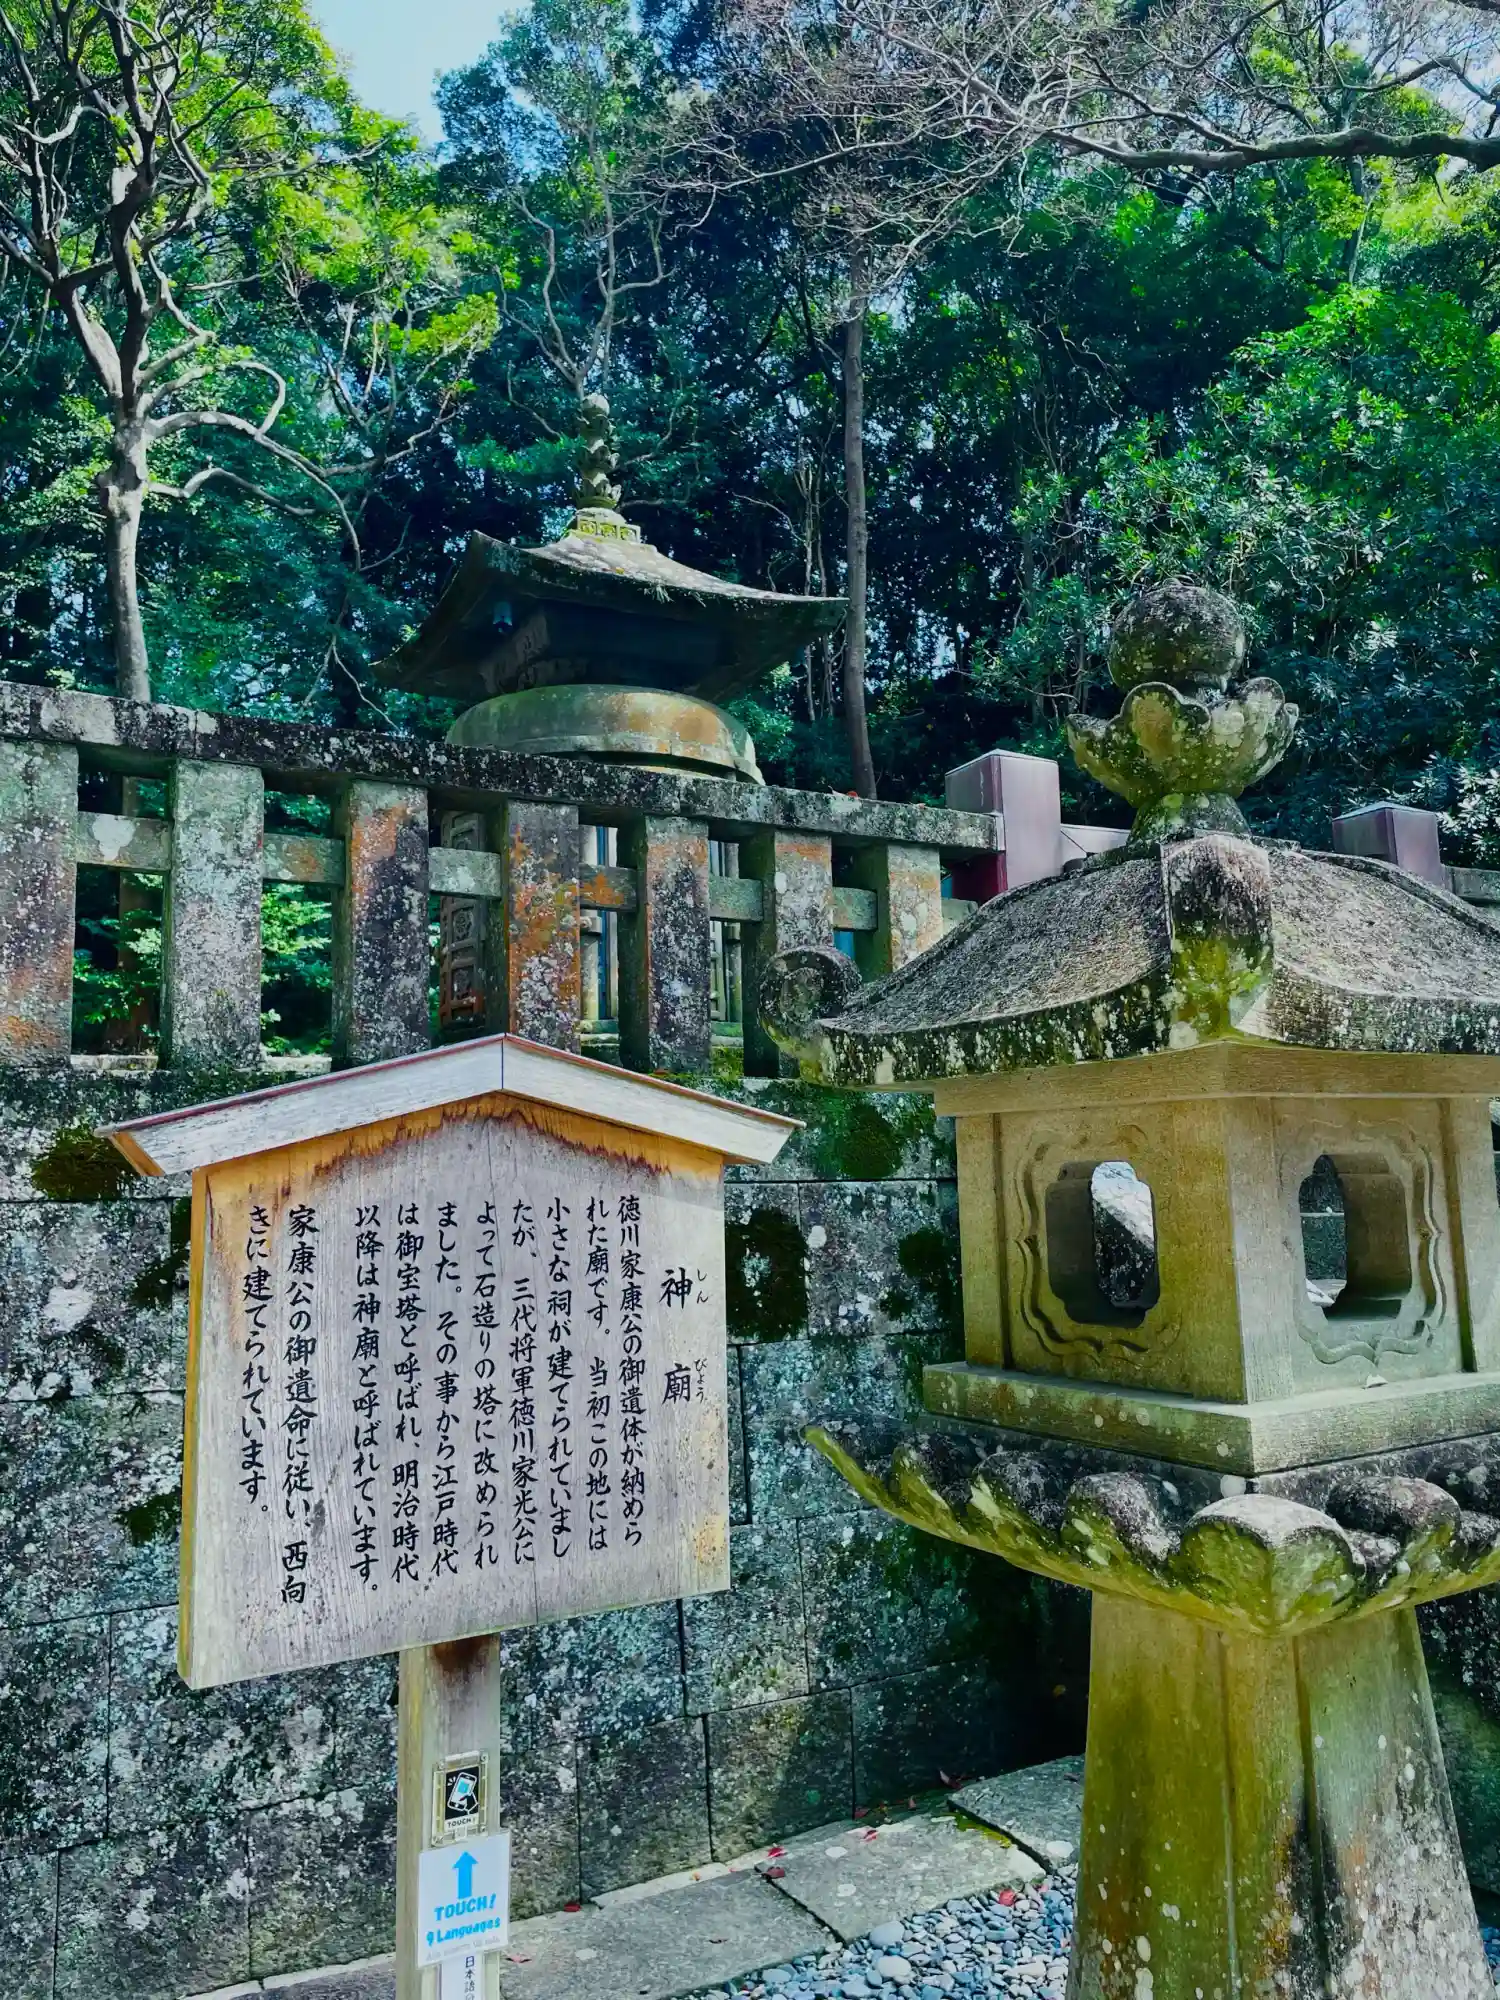 神廟
しんびょう
徳川家康公の御遺体が納めら
れた廟です。当初この地には
小さな祠が建てられていまし
たが、三代将軍徳川家光公に
よって石造りの塔に改められ
ました。その事から江戸時代
は御宝塔と呼ばれ、明治時代
以降は神廟と呼ばれています。
家康公の御遺命に従い、西向
きに建てられています。
TOUCH!
TOUCH!
9 Languages
日本語